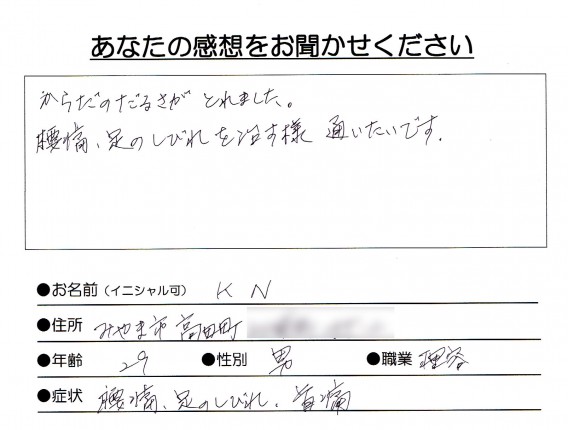 あなたの感想をお聞かせください
からだのだるさがとれました。
腰痛、足のしびれを治す様 通いたいです.
●お名前(イニシャル可) K N
●住所 みやま市高田町
●年齢 29 ●性別 男 ●職業 理容
●症状 腰痛、足のしびれ、首痛